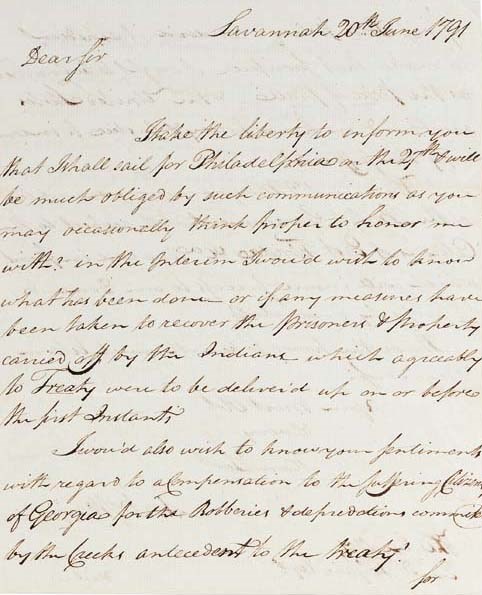 Savannah 20th June 1791
Dear Sir
I take the liberty to inform you
that I shall sail for Philadelphia on the 27th & will
be much obliged by such communications as you
may occasionally think proper to honor me
with? in the Interim I wou'd wish to know
what has been done or if any measures have
been taken to recover the Prisoners & Property
carried off by the Indians which agreeably
to Treaty were to be deliver'd up on or before
the first Instant;
I wou'd also wish to know your sentiments
with regard to a Compensation to the suffering Citizens
of Georgia for the Robberies & depredations commited
by the Creeks antecedent to the treaty?
for